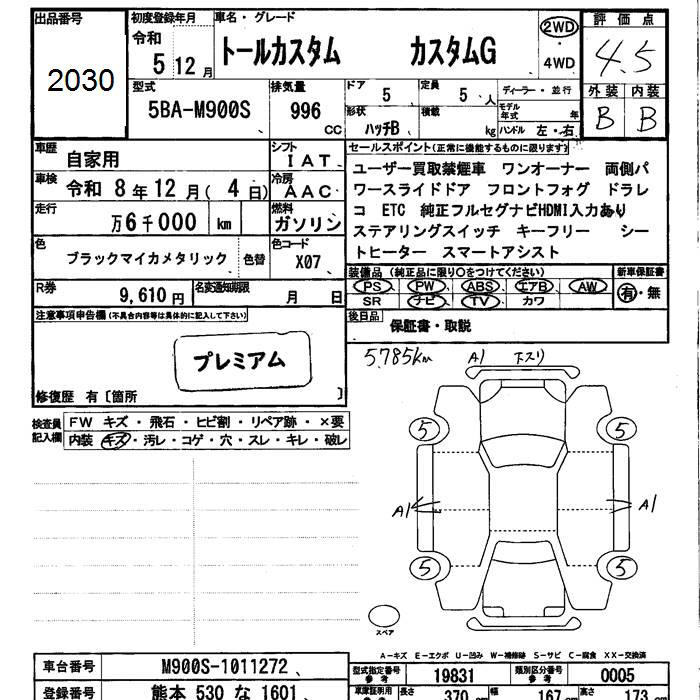 出品番号
2030
初度登録年月
令和
5 12 月
車名・グレード
トールカスタム カスタムG
2WD
・
4WD
評価点
4.5
外装 内装
B B
型式
5BA-M900S
排気量
996
cc
ドア
5
定員
5 人
形状
ハッチB
積載
kg
ディーラー・並行
モデル
年式 年
ハンドル 左・右
車歴
自家用
シフト
IAT
車検
令和 8年12月( 4日)
冷房
AAC
走行
万6千000 km
燃料
ガソリン
色
ブラックマイカメタリック
色替
色コード
X07
R券
9,610円
名変通知期限
月 日
セールスポイント(正常に機能するものに限ります)
ユーザー買取禁煙車 ワンオーナー 両側パ
ワースライドドア フロントフォグ ドラレ
コ ETC 純正フルセグナビHDMI入力あり
ステアリングスイッチ キーフリー シー
トヒーター スマートアシスト
装備品(純正品に限り○をつけてください)
PS PW ABS エアB AW
SR ナビ TV カワ
新車保証書
有・無
後日品
保証書・取説
注意事項申告欄(不具合内容等は具体的に記入して下さい)
プレミアム
修復歴 有〔箇所 〕
5785km
A1 下スリ
検査員
記入欄
FW キズ・飛石・ヒビ割・リペア跡・×要
内装 キズ・汚レ・コゲ・穴・スレ・キレ・破レ
5 5
A1 A1
5 5
スペア
A-キズ E-エクボ U-凹み W-補修跡 S-サビ C-腐食 XX-交換済
車台番号
M900S-1011272
登録番号
熊本 530 な 1601
型式指定番号
参考
19831
類別区分番号
参考
0005
車庫証明用
参考
長さ
370 cm
幅
167 cm
高さ
173 cm